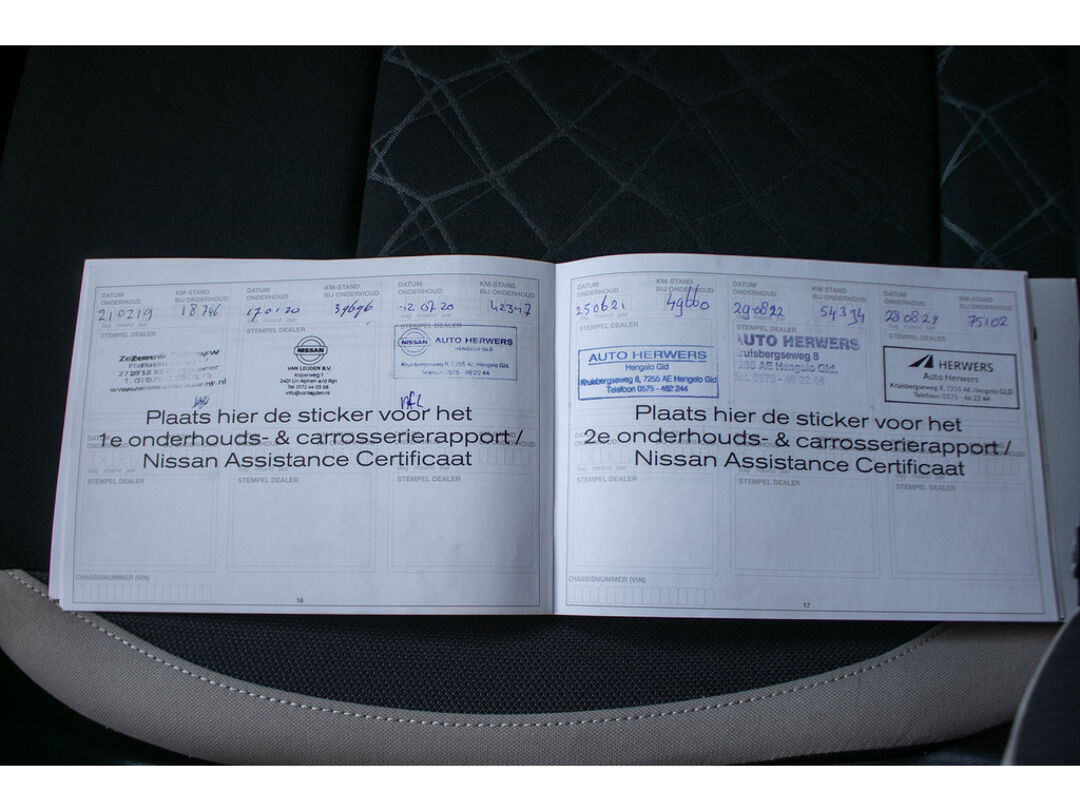 DATUM ONDERHOUD
KM-STAND BIJ ONDERHOUD
210219
18746
dag maand jaar
STEMPEL DEALER
DATUM ONDERHOUD
KM-STAND BIJ ONDERHOUD
39696
maand jaar
STEMPEL DEALER
NISSAN
VAN LEIJDEN B.V.
Koperweg 1
2401 LH Alphen a/d Rijn
Tel. 0172 44 05 66
DATUM ONDERHOUD
KM-STAND BIJ ONDERHOUD
12 07 20
42347
STEMPEL DEALER
NISSAN
AUTO HERWERS
HENGELO GLD
Kruisbergseweg 8, 7255 AE Hengelo Gld
Telefoon 0575 - 46 22 44
Plaats hier de sticker voor het
1e onderhouds- & carrosserierapport /
Nissan Assistance Certificaat
STEMPEL DEALER
STEMPEL DEALER
STEMPEL DEALER
CHASSISNUMMER (VIN)
16
DATUM ONDERHOUD
KM-STAND BIJ ONDERHOUD
250621
49660
dag maand jaar
STEMPEL DEALER
AUTO HERWERS
Hengelo Gld
Kruisbergseweg 8, 7255 AE Hengelo Gld
Telefoon 0575 - 462 244
DATUM ONDERHOUD
KM-STAND BIJ ONDERHOUD
290822
54394
STEMPEL DEALER
AUTO HERWERS
Kruisbergseweg 8
7255 AE Hengelo Gld.
Tel. 0575 - 46 22 44
DATUM ONDERHOUD
KM-STAND BIJ ONDERHOUD
75102
dag maand jaar
STEMPEL DEALER
HERWERS
Auto Herwers
Kruisbergseweg 8, 7255 AE Hengelo GLD
Telefoon: 0575 - 46 22 44
Plaats hier de sticker voor het
2e onderhouds- & carrosserierapport /
Nissan Assistance Certificaat
STEMPEL DEALER
STEMPEL DEALER
STEMPEL DEALER
CHASSISNUMMER (VIN)
17